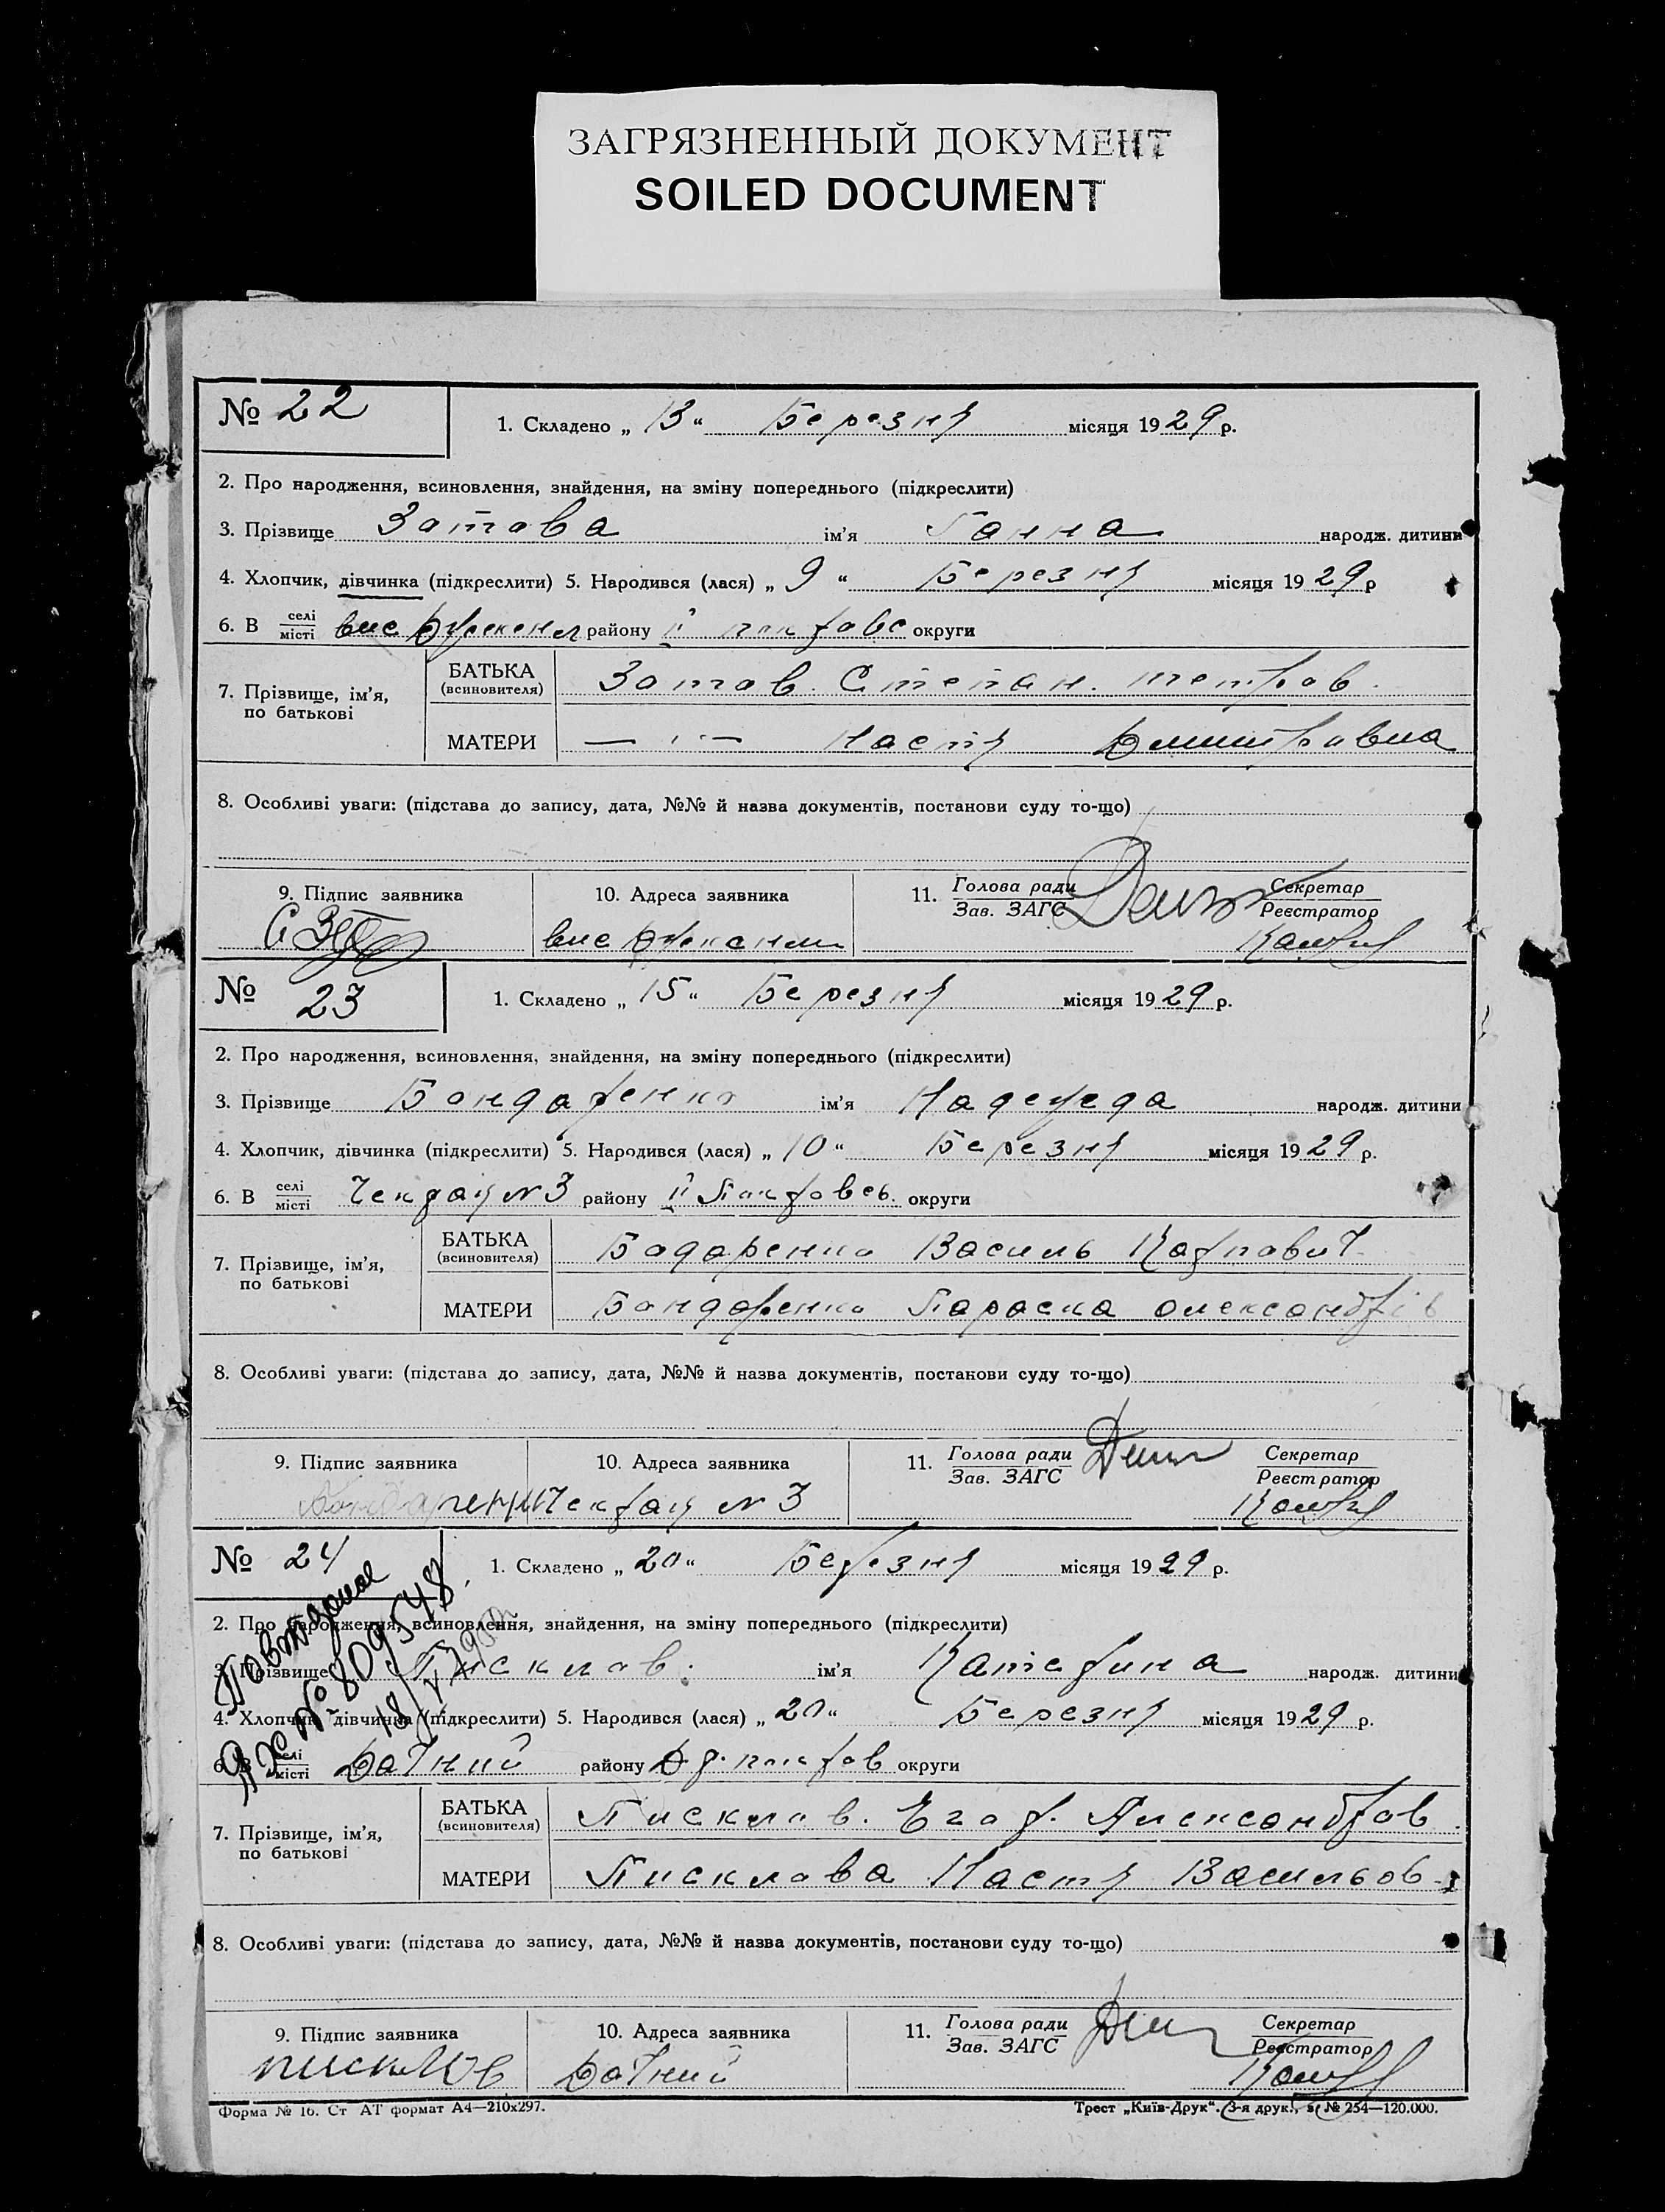 ЗАГРЯЗНЕННЫЙ ДОКУМЕНТ
SOILED DOCUMENT
№ 22
1. Складено „ 13 “ Березня місяця 1929 р.
2. Про народження, всиновлення, знайдення, на зміну попереднього (підкреслити)
3. Прізвище Зотова ім’я Ганна народж. дитини
4. Хлопчик, дівчинка (підкреслити) 5. Народився (лася) „ 9 “ Березня місяця 1929 р
6. В селі місті вис району округи
7. Прізвище, ім’я, по батькові
БАТЬКА (всиновителя) Зотов. Степан. петров.
МАТЕРИ — " — Настя Дмитровна
8. Особливі уваги: (підстава до запису, дата, №№ й назва документів, постанови суду то-що)
9. Підпис заявника 10. Адреса заявника 11. Голова ради Зав. ЗАГС Секретар Реєстратор
вис
№ 23
1. Складено „ 15 “ Березня місяця 1929 р.
2. Про народження, всиновлення, знайдення, на зміну попереднього (підкреслити)
3. Прізвище Бондаренко ім’я Надежда народж. дитини
4. Хлопчик, дівчинка (підкреслити) 5. Народився (лася) „ 10 “ Березня місяця 1929 р.
6. В селі місті Чекрая N 3 району округи
7. Прізвище, ім’я, по батькові
БАТЬКА (всиновителя) Бодаренко Василь Карпович
МАТЕРИ Бондаренко Параска олександрів
8. Особливі уваги: (підстава до запису, дата, №№ й назва документів, постанови суду то-що)
9. Підпис заявника 10. Адреса заявника 11. Голова ради Зав. ЗАГС Секретар Реєстратор
Чекрая N 3
№ 24
1. Складено „ 20 “ Березня місяця 1929 р.
2. Про народження, всиновлення, знайдення, на зміну попереднього (підкреслити)
3. Прізвище Писклов. ім’я Катерина народж. дитини
4. Хлопчик, дівчинка (підкреслити) 5. Народився (лася) „ 20 “ Березня місяця 1929 р.
6. В селі місті Дачний району округи
№ 809548
7. Прізвище, ім’я, по батькові
БАТЬКА (всиновителя) Писклов. Егор. Александров.
МАТЕРИ Писклова Настя Васильов
8. Особливі уваги: (підстава до запису, дата, №№ й назва документів, постанови суду то-що)
9. Підпис заявника 10. Адреса заявника 11. Голова ради Зав. ЗАГС Секретар Реєстратор
писклов Дачний
Форма № 16. Ст АТ формат А4—210х297. Трест „Київ-Друк“. 3-я друк., з. № 254—120.000.